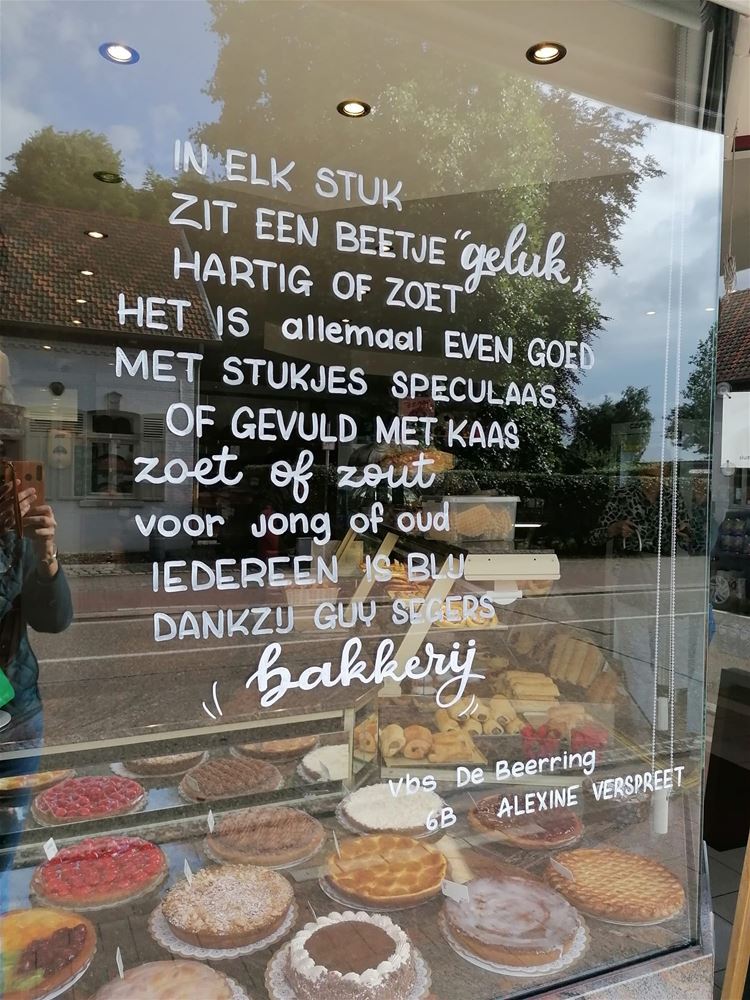 IN ELK STUK
ZIT EEN BEETJE "geluk,
HARTIG OF ZOET
HET IS allemaal EVEN GOED
MET STUKJES SPECULAAS
OF GEVULD MET KAAS
zoet of zout
voor jong of oud
IEDEREEN IS BLIJ
DANKZIJ GUY SEGERS
bakkerij
vbs De Beerring
6B ALEXINE VERSPREET